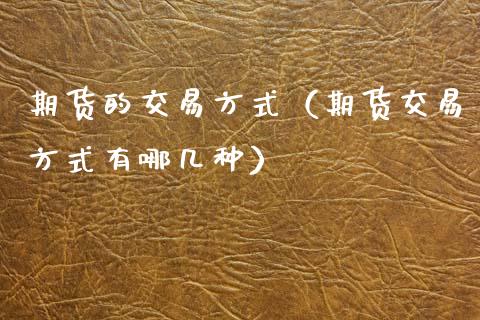 期货的交易方式（期货交易
方式有哪几种）